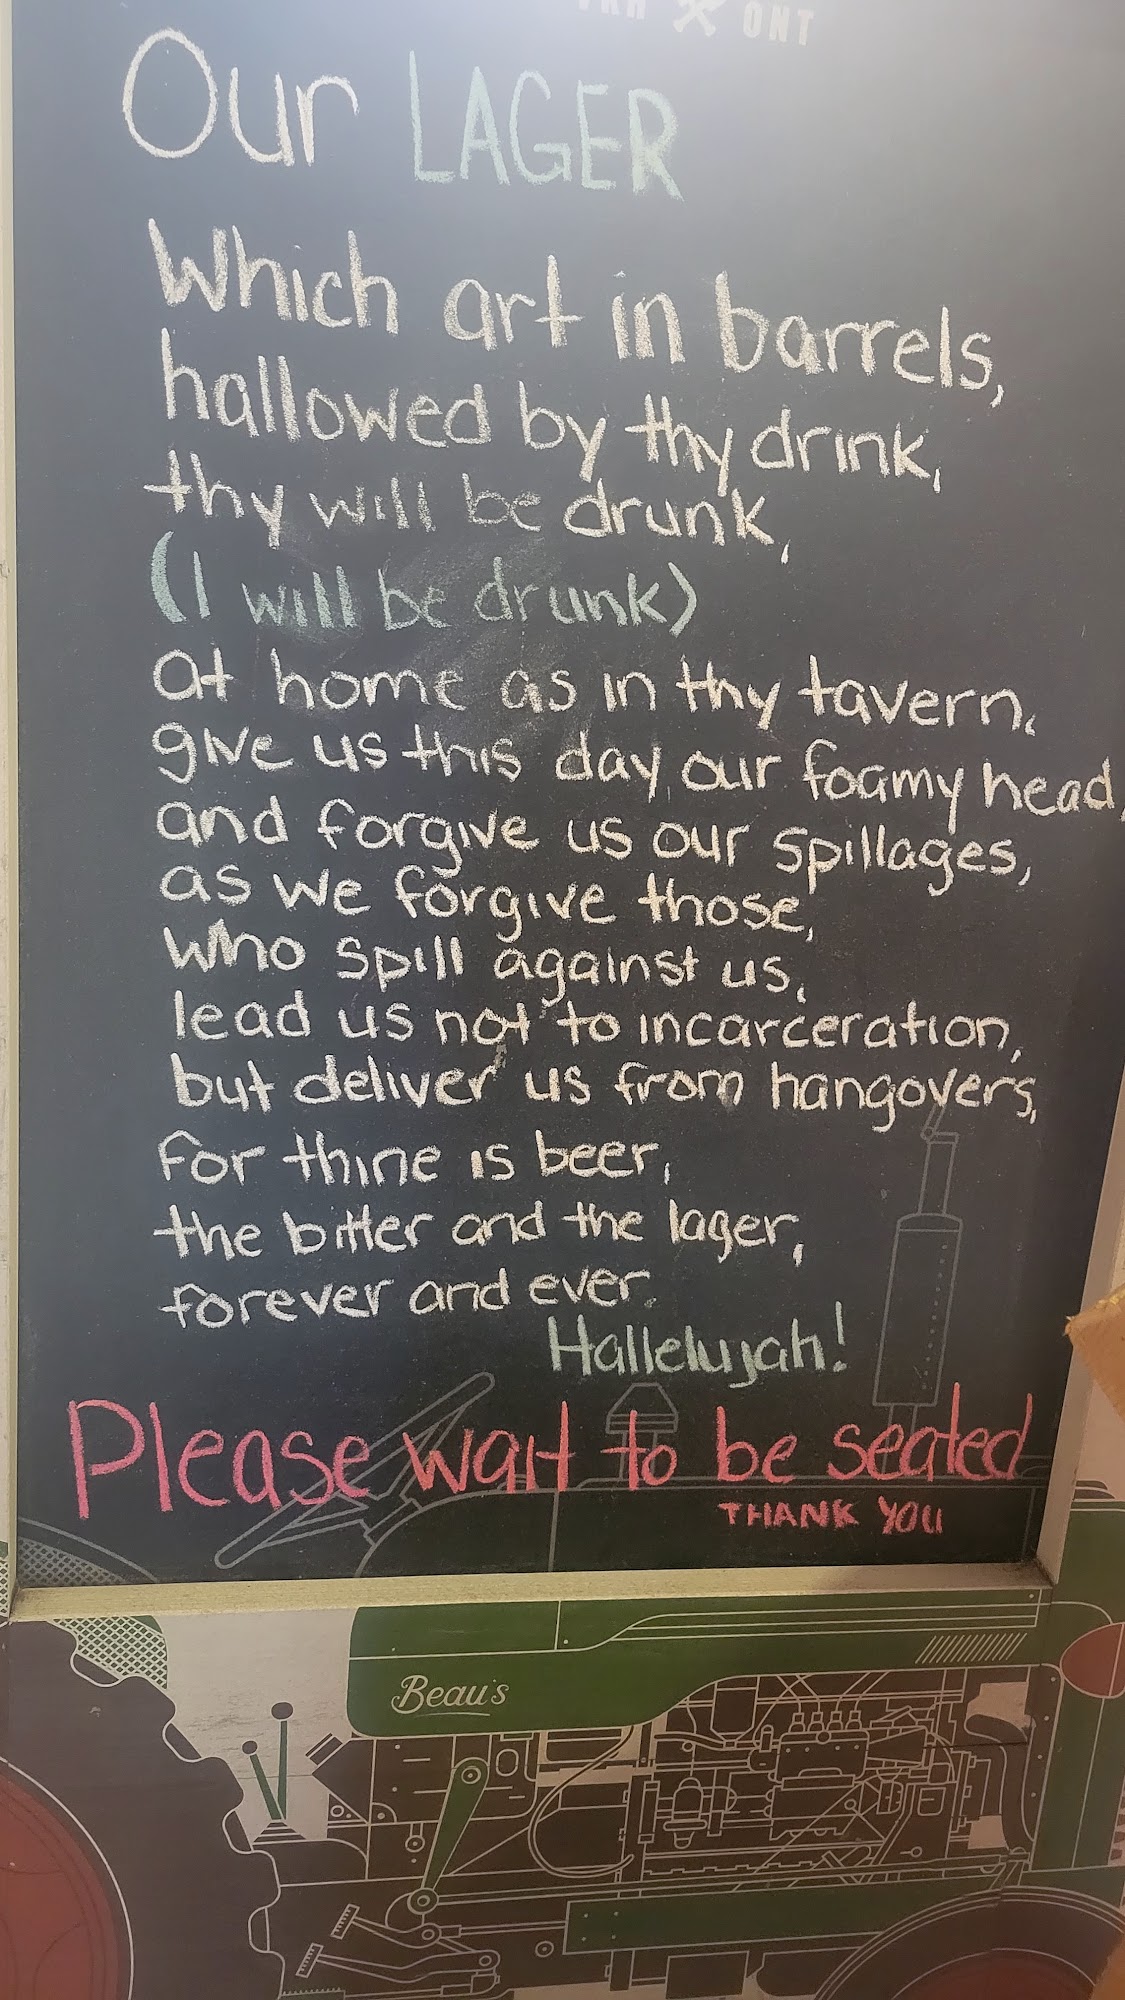 ONT
Our LAGER
Which art in barrels,
hallowed by thy drink,
thy will be drunk,
(I will be drunk)
at home as in thy tavern.
give us this day our foamy head,
and forgive us our spillages,
as we forgive those,
who spill against us,
lead us not to incarceration,
but deliver us from hangovers,
for thine is beer,
the bitter and the lager,
forever and ever.
Hallelujah!
Please wait to be seated
THANK YOU
Beau's